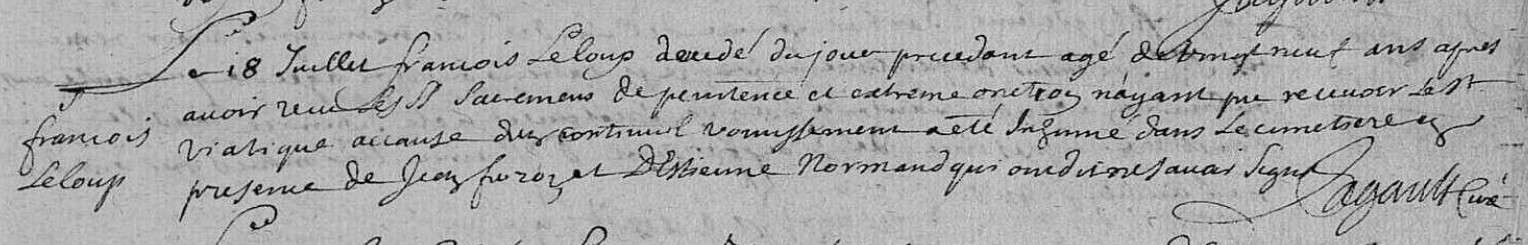 Le 18 Juillet francois Leloup decedé du jour precedant agé de vingt neuf ans apres
avoir receu les Sts Sacremens de penitence et extreme onction n'ayant pu recevoir le St
francois
viatique accause d'un continuel vomissement a eté Inhumé dans le cimetiere en
Leloup
presence de Jean et D'Estienne Normand qui ont dit ne savoir signer
Sagault Curé